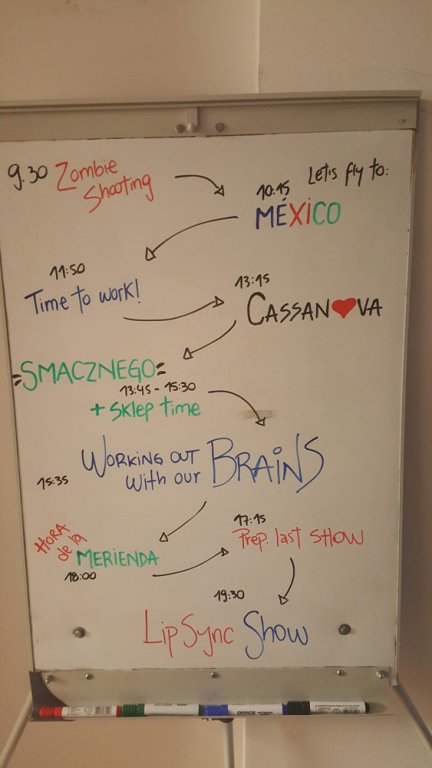 9.30 Zombie
Shooting
10:15 Let's fly to:
MÉXICO
11:50
Time to work!
13:15
CASSAN♥VA
=SMACZNEGO=
13:45 - 15:30
+ Sklep time
WORKING OUT
with our BRAINS
15:35
HORA
de la
MERIENDA
18:00
17:15
Prep. last SHOW
19:30
Lip Sync Show